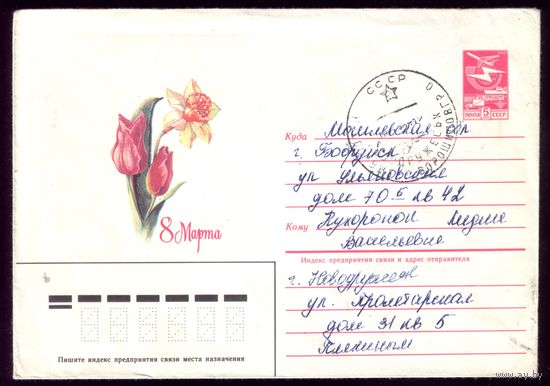 8 Марта
ПОЧТА 5 СССР
СССР
Куда Могилевская обл
г. Бобруйск
ул Ульяновская
дом 70 б кв 42
Кому Кухоровой Лидие
Васильевне
Индекс предприятия связи и адрес отправителя
г. Новодружеск
ул. Пролетарская
дом 31 кв 5
Пишите индекс предприятия связи места назначения
www.ay.by